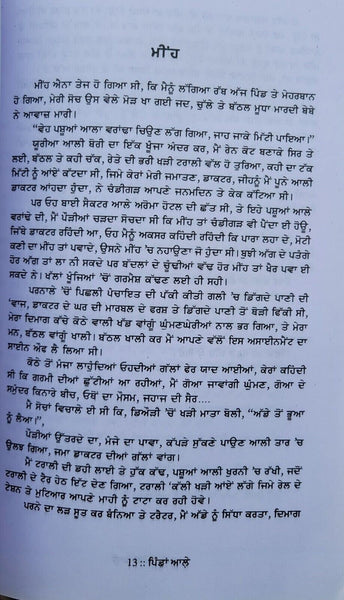 ਮੀਂਹ
ਮੀਂਹ ਐਨਾ ਤੇਜ ਹੋ ਗਿਆ ਸੀ, ਕਿ ਮੈਨੂੰ ਲੱਗਿਆ ਰੱਬ ਅੱਜ ਪਿੰਡ ਤੇ ਮੇਹਰਬਾਨ
ਹੋ ਗਿਆ, ਮੇਰੀ ਸੋਚ ਉਸ ਵੇਲੇ ਮੋੜ ਖਾ ਗਈ ਜਦ, ਚੁੱਲੇ ਤੇ ਬੱਠਲ ਮੂਧਾ ਮਾਰਦੀ ਬੇਬੇ
ਨੇ ਆਵਾਜ਼ ਮਾਰੀ।
“ਵੇਹ ਪਸ਼ੂਆਂ ਆਲਾ ਵਰਾਂਢਾ ਚਿਉਣ ਲੱਗ ਗਿਆ, ਜਾਹ ਜਾਕੇ ਮਿੱਟੀ ਪਾਇਆ।”
ਯੂਰੀਆ ਆਲੀ ਬੋਰੀ ਦਾ ਇੱਕ ਖੂੰਜਾ ਅੰਦਰ ਕਰ, ਮੈਂ ਰੇਨ ਕੋਟ ਬਣਾਕੇ ਸਿਰ ਤੇ
ਲਈ, ਬੱਠਲ ਤੇ ਕਹੀ ਚੱਕ, ਰੇਤੇ ਦੀ ਭਰੀ ਖੜੀ ਟਰਾਲੀ ਵੱਲ ਹੋ ਤੁਰਿਆ, ਕਹੀ ਦਾ ਟੱਕ
ਮਿੱਟੀ ਨੂੰ ਇਐਂ ਕੱਟਦਾ ਸੀ, ਜਿਮੇਂ ਕੇਰਾਂ ਮੇਰੀ ਜਮਾਤਣ, ਡਾਕਟਰ, ਜੀਹਨੂੰ ਮੈਂ ਪੂਨੇ ਆਲੀ
ਡਾਕਟਰ ਆਂਹਦਾ ਹੁੰਦਾ, ਨੇ ਚੰਡੀਗੜ ਆਪਣੇ ਜਨਮਦਿਨ ਤੇ ਕੇਕ ਕੱਟਿਆ ਸੀ।
ਪਰ ਓਹ ਬਾਈ ਸੈਕਟਰ ਆਲੇ ਅਰੋਮਾ ਹੋਟਲ ਦੀ ਛੱਤ ਸੀ, ਤੇ ਇਹੇ ਪਸ਼ੂਆਂ ਆਲੇ
ਵਰਾਂਢੇ ਦੀ, ਮੈਂ ਪੌੜੀਆਂ ਚੜਦਾ ਸੋਚਦਾ ਸੀ ਕਿ ਮੀਂਹ ਤਾਂ ਚੰਡੀਗੜ ਵੀ ਐਵੇਂ ਪੈਂਦਾ ਈ ਹੋਊ,
ਜਿੱਥੇ ਡਾਕਟਰ ਰਹਿੰਦੀ ਆ, ਓਹ ਮੈਨੂੰ ਅਕਸਰ ਕਹਿੰਦੀ ਰਹਿੰਦੀ ਕਿ ਪਾਰਾ ਲਹਾ ਦੇ, ਮੋਟੀ
ਕਣੀ ਦਾ ਮੀਂਹ ਤਾਂ ਪਵਾਦੇ, ਉਸਨੇ ਮੀਂਹ 'ਚ ਨਹਾਉਣਾ ਜੋ ਹੁੰਦਾ ਸੀ। ਬੁਝੀ ਅੱਗ ਦੇ ਪਤੰਗੇ
ਹੋਰ ਅੱਗ ਤਾਂ ਲਾ ਨੀ ਸਕਦੇ ਪਰ ਬੱਦਲਾਂ ਦੇ ਚੂੰਢੀਆਂ ਵੱਢ ਹੋਰ ਮੀਂਹ ਤਾਂ ਖੈਰ ਪਵਾ ਈ
ਸਕਦੇ ਨੇ। ਖੱਲਾਂ ਖੂੰਜਿਆਂ 'ਚੋਂ ਗਰਮੈਸ਼ ਕੱਢਣ ਲਈ ਹੀ ਸਹੀ।
ਪਰਨਾਲੇ 'ਚੋਂ ਪਿਛਲੀ ਪੰਚਾਇਤ ਦੀ ਪੱਕੀ ਕੀਤੀ ਗਲੀ 'ਚ ਡਿੱਗਦੇ ਪਾਣੀ ਦੀ
'ਵਾਜ, ਡਾਕਟਰ ਦੇ ਘਰ ਦੀ ਮਾਰਬਲ ਦੇ ਫਰਸ਼ ਤੇ ਡਿੱਗਦੇ ਪਾਣੀ ਤੋਂ ਥੋੜੀ ਫਿੱਕੀ ਸੀ,
ਮੇਰਾ ਦਿਮਾਗ ਕੱਚੇ ਕੋਠੇ ਵਾਲੀ ਖੱਡ ਵਾਂਗੂੰ ਘੁੰਮਣਘੇਰੀਆਂ ਨਾਲ ਭਰ ਗਿਆ, ਤੇ ਮੇਰਾ
ਮਨ, ਬੱਠਲ ਵਾਂਗੂੰ ਖਾਲੀ। ਬੱਠਲ ਖਾਲੀ ਕਰ ਮੈਂ ਆਪਣੇ ਵੱਲੋਂ ਇਸ ਅਸਾਈਨਮੈਂਟ ਦਾ
ਸਾਈਨ ਔਫ ਲੈ ਲਿਆ ਸੀ।
ਕੋਠੇ ਤੋਂ ਮੰਜਾ ਲਾਹੁੰਦਿਆਂ ਓਹਦੀਆਂ ਗੱਲਾਂ ਫੇਰ ਯਾਦ ਆਈਆਂ, ਕੇਰਾਂ ਕਹਿੰਦੀ
ਸੀ ਕਿ ਗਰਮੀ ਦੀਆਂ ਛੁੱਟੀਆਂ ਆ ਰਹੀਆਂ, ਮੈਂ ਗੋਆ ਜਾਵਾਂਗੀ ਘੁੰਮਣ, ਗੋਆ ਦੇ
ਸਮੁੰਦਰ ਕਿਨਾਰੇ ਬੀਚ, ਓਥੋਂ ਦਾ ਮੌਸਮ, ਜਹਾਜ ਦੀ ਸੈਰ....
ਮੈਂ ਸੋਚਾਂ ਵਿਚਾਲੇ ਈ ਸੀ ਕਿ, ਡਿਔੜੀ 'ਚੋਂ ਖੜੀ ਮਾਤਾ ਬੋਲੀ, “ਅੱਡੇ ਤੋਂ ਭੂਆ
ਨੂੰ ਲੈਆ।”,
ਪੌੜੀਆਂ ਉੱਤਰਦੇ ਦਾ, ਮੰਜੇ ਦਾ ਪਾਵਾ, ਕੱਪੜੇ ਸੁੱਕਣੇ ਪਾਉਣ ਆਲੀ ਤਾਰ 'ਚ
ਉਲਝ ਗਿਆ, ਜਮਾ ਡਾਕਟਰ ਦੀਆਂ ਗੱਲਾਂ ਵਾਂਗ।
ਮੈਂ ਟਰਾਲੀ ਦੀ ਡਹੀ ਲਾਈ ਤੇ ਹੁੱਕ ਕੱਢ, ਪਸ਼ੂਆਂ ਆਲੀ ਖੁਰਨੀ 'ਚ ਰੱਖੀ, ਜਦੋਂ
ਟਰਾਲੀ ਦੇ ਟੈਰ ਹੇਠ ਇੱਟ ਦੇਣ ਗਿਆ, ਟਰਾਲੀ 'ਕੱਲੀ ਖੜੀ ਆਂਏਂ ਲੱਗੇ ਜਿਮੇ ਰੇਲ ਦੇ
ਟੇਸ਼ਨ ਤੇ ਮੁਟਿਆਰ ਆਪਣੇ ਮਾਹੀ ਨੂੰ ਟਾਟਾ ਕਰ ਰਹੀ ਹੋਵੇ।
ਪਰਨੇ ਦਾ ਲੜ ਸੂਤ ਕਰ ਬੰਨਿਆ ਤੇ ਟਰੈਟਰ, ਮੈਂ ਅੱਡੇ ਨੂੰ ਸਿੱਧਾ ਕਰਤਾ, ਦਿਮਾਗ
13 :: ਪਿੰਡਾਂ ਆਲੇ